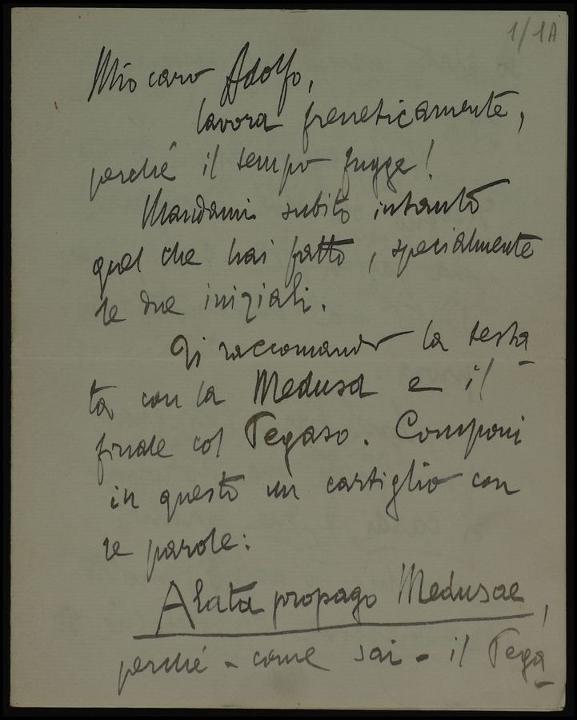 1/1A
Mio caro Adolfo,
lavora freneticamente,
perché il tempo fugge!
Mandami subito intanto
quel che hai fatto, specialmente
le due iniziali.
Ti raccomando la testa-
ta con la Medusa e il
finale col Pegaso. Componi
in questo un cartiglio con
le parole:
Alata propago Medusae,
perché - come sai - il Pega-